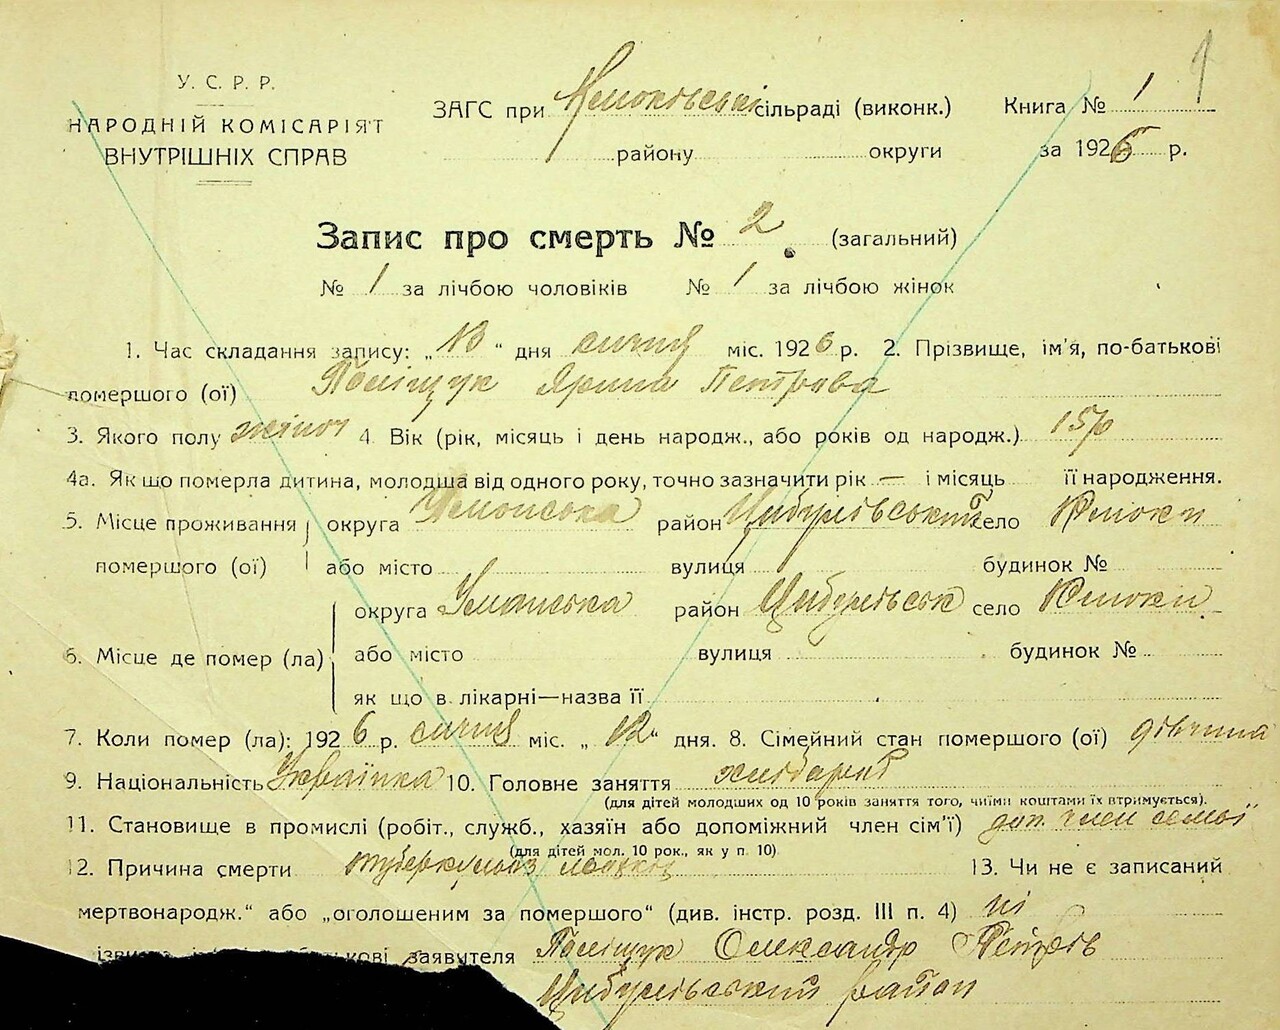 У. С. Р. Р.
НАРОДНІЙ КОМІСАРІЯТ
ВНУТРІШНІХ СПРАВ
ЗАГС при сільраді (виконк.) Книга № 1 1
району округи за 1926 р.
Запис про смерть № 2. (загальний)
№ 1 за лічбою чоловіків № 1 за лічбою жінок
1. Час складання запису: „13“ дня січня міс. 1926 р. 2. Прізвище, ім'я, по-батькові
помершого (ої) Поліщук Ярина Петрова
3. Якого полу жіноч 4. Вік (рік, місяць і день народж., або років од народж.)
4а. Як що померла дитина, молодша від одного року, точно зазначити рік — і місяць її народження.
5. Місце проживання помершого (ої) округа Уманська район Цибулівський село Клюки
або місто вулиця будинок №
6. Місце де помер (ла) округа Уманська район Цибулівськ село Клюки
або місто вулиця будинок №
як що в лікарні—назва її
7. Коли помер (ла): 1926 р. січня міс. „12“ дня. 8. Сімейний стан помершого (ої) дівчина
9. Національність Українка 10. Головне заняття хліборob
(для дітей молодших од 10 років заняття того, чиїми коштами їх втримується).
11. Становище в промислі (робіт., служб., хазяїн або допоміжний член сім'ї) доп. член семьї
(для дітей мол. 10 рок., як у п. 10)
12. Причина смерти туберкульоз легких 13. Чи не є записаний
мертвонародж.“ або „оголошеним за помершого“ (див. інстр. розд. III п. 4) ні
заявителя Поліщук Олександр Петрів
Цибулівський район